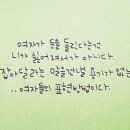 여자가 등을 돌린다는건
니가 싫어져서가 아니다
잡아달라는 말을건넬 용기가 없는
..여자들의 표현방법이다.